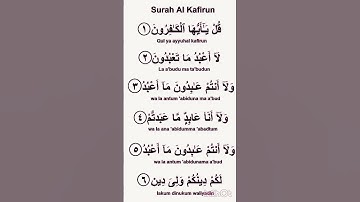 Surah Al Kafirun
قُلْ يَـٰٓأَيُّهَا ٱلْكَـٰفِرُونَ ١
Gul ya ayyuhal kafirun
لَآ أَعْبُدُ مَا تَعْبُدُونَ ٢
La a'budu ma ta'budun
وَلَآ أَنتُمْ عَـٰبِدُونَ مَآ أَعْبُدُ ٣
wa la antum 'abiduna ma a'bud
وَلَآ أَنَا۠ عَابِدٌ مَّا عَبَدتُّمْ ٤
wa la ana 'abidumma 'abadtum
وَلَآ أَنتُمْ عَـٰبِدُونَ مَآ أَعْبُدُ ٥
wa la antum 'abidunama a'bud
لَكُمْ دِينُكُمْ وَلِىَ دِينِ ٦
lakum dinukum waliyadin